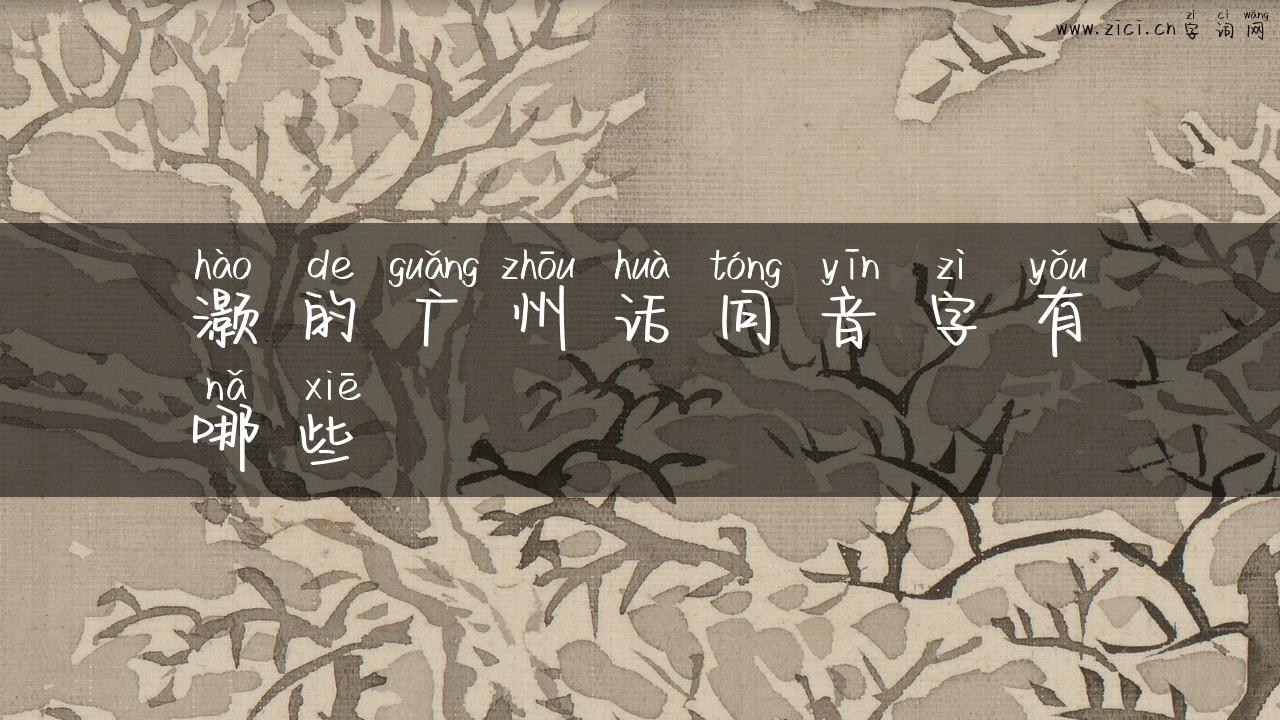 zì cí wǎng
www.zici.cn字词网
hào de guǎng zhōu huà tóng yīn zì yǒu
灏的广州话同音字有
nǎ xiē
哪些